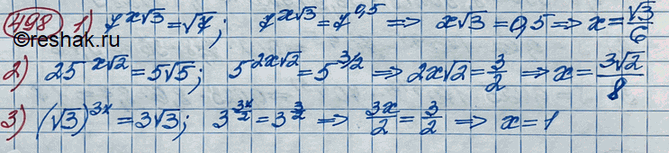 498 1) 7^{x√3} = √7; 7^{x√3} = 7^{0,5} ⟹ x√3 = 0,5 ⟹ x = √3/6
©reshak.ru
2) 25^{x√2} = 5√5; 5^{2x√2} = 5^{3/2} ⟹ 2x√2 = 3/2 ⟹ x = 3√2/8
3) (√3)^{3x} = 3√3; 3^{3x/2} = 3^{3/2} ⟹ 3x/2 = 3/2 ⟹ x = 1